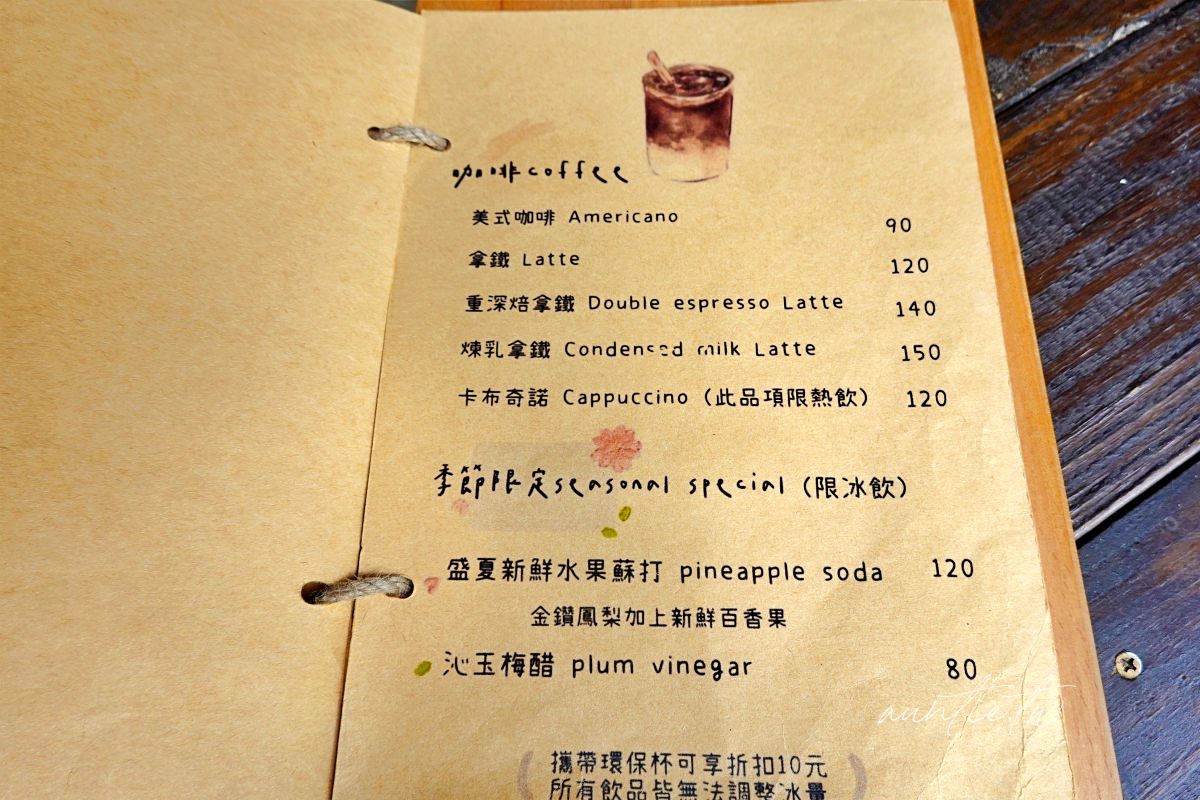 咖啡coffee
美式咖啡 Americano 90
拿鐵 Latte 120
重深焙拿鐵 Double espresso Latte 140
煉乳拿鐵 Condensed milk Latte 150
卡布奇諾 Cappuccino (此品項限熱飲) 120
季節限定seasonal special (限冰飲)
盛夏新鮮水果蘇打 pineapple soda 120
金鑽鳳梨加上新鮮百香果
沁玉梅醋 plum vinegar 80
auntie
攜帶環保杯可享折扣10元
所有飲品皆無法調整冰量